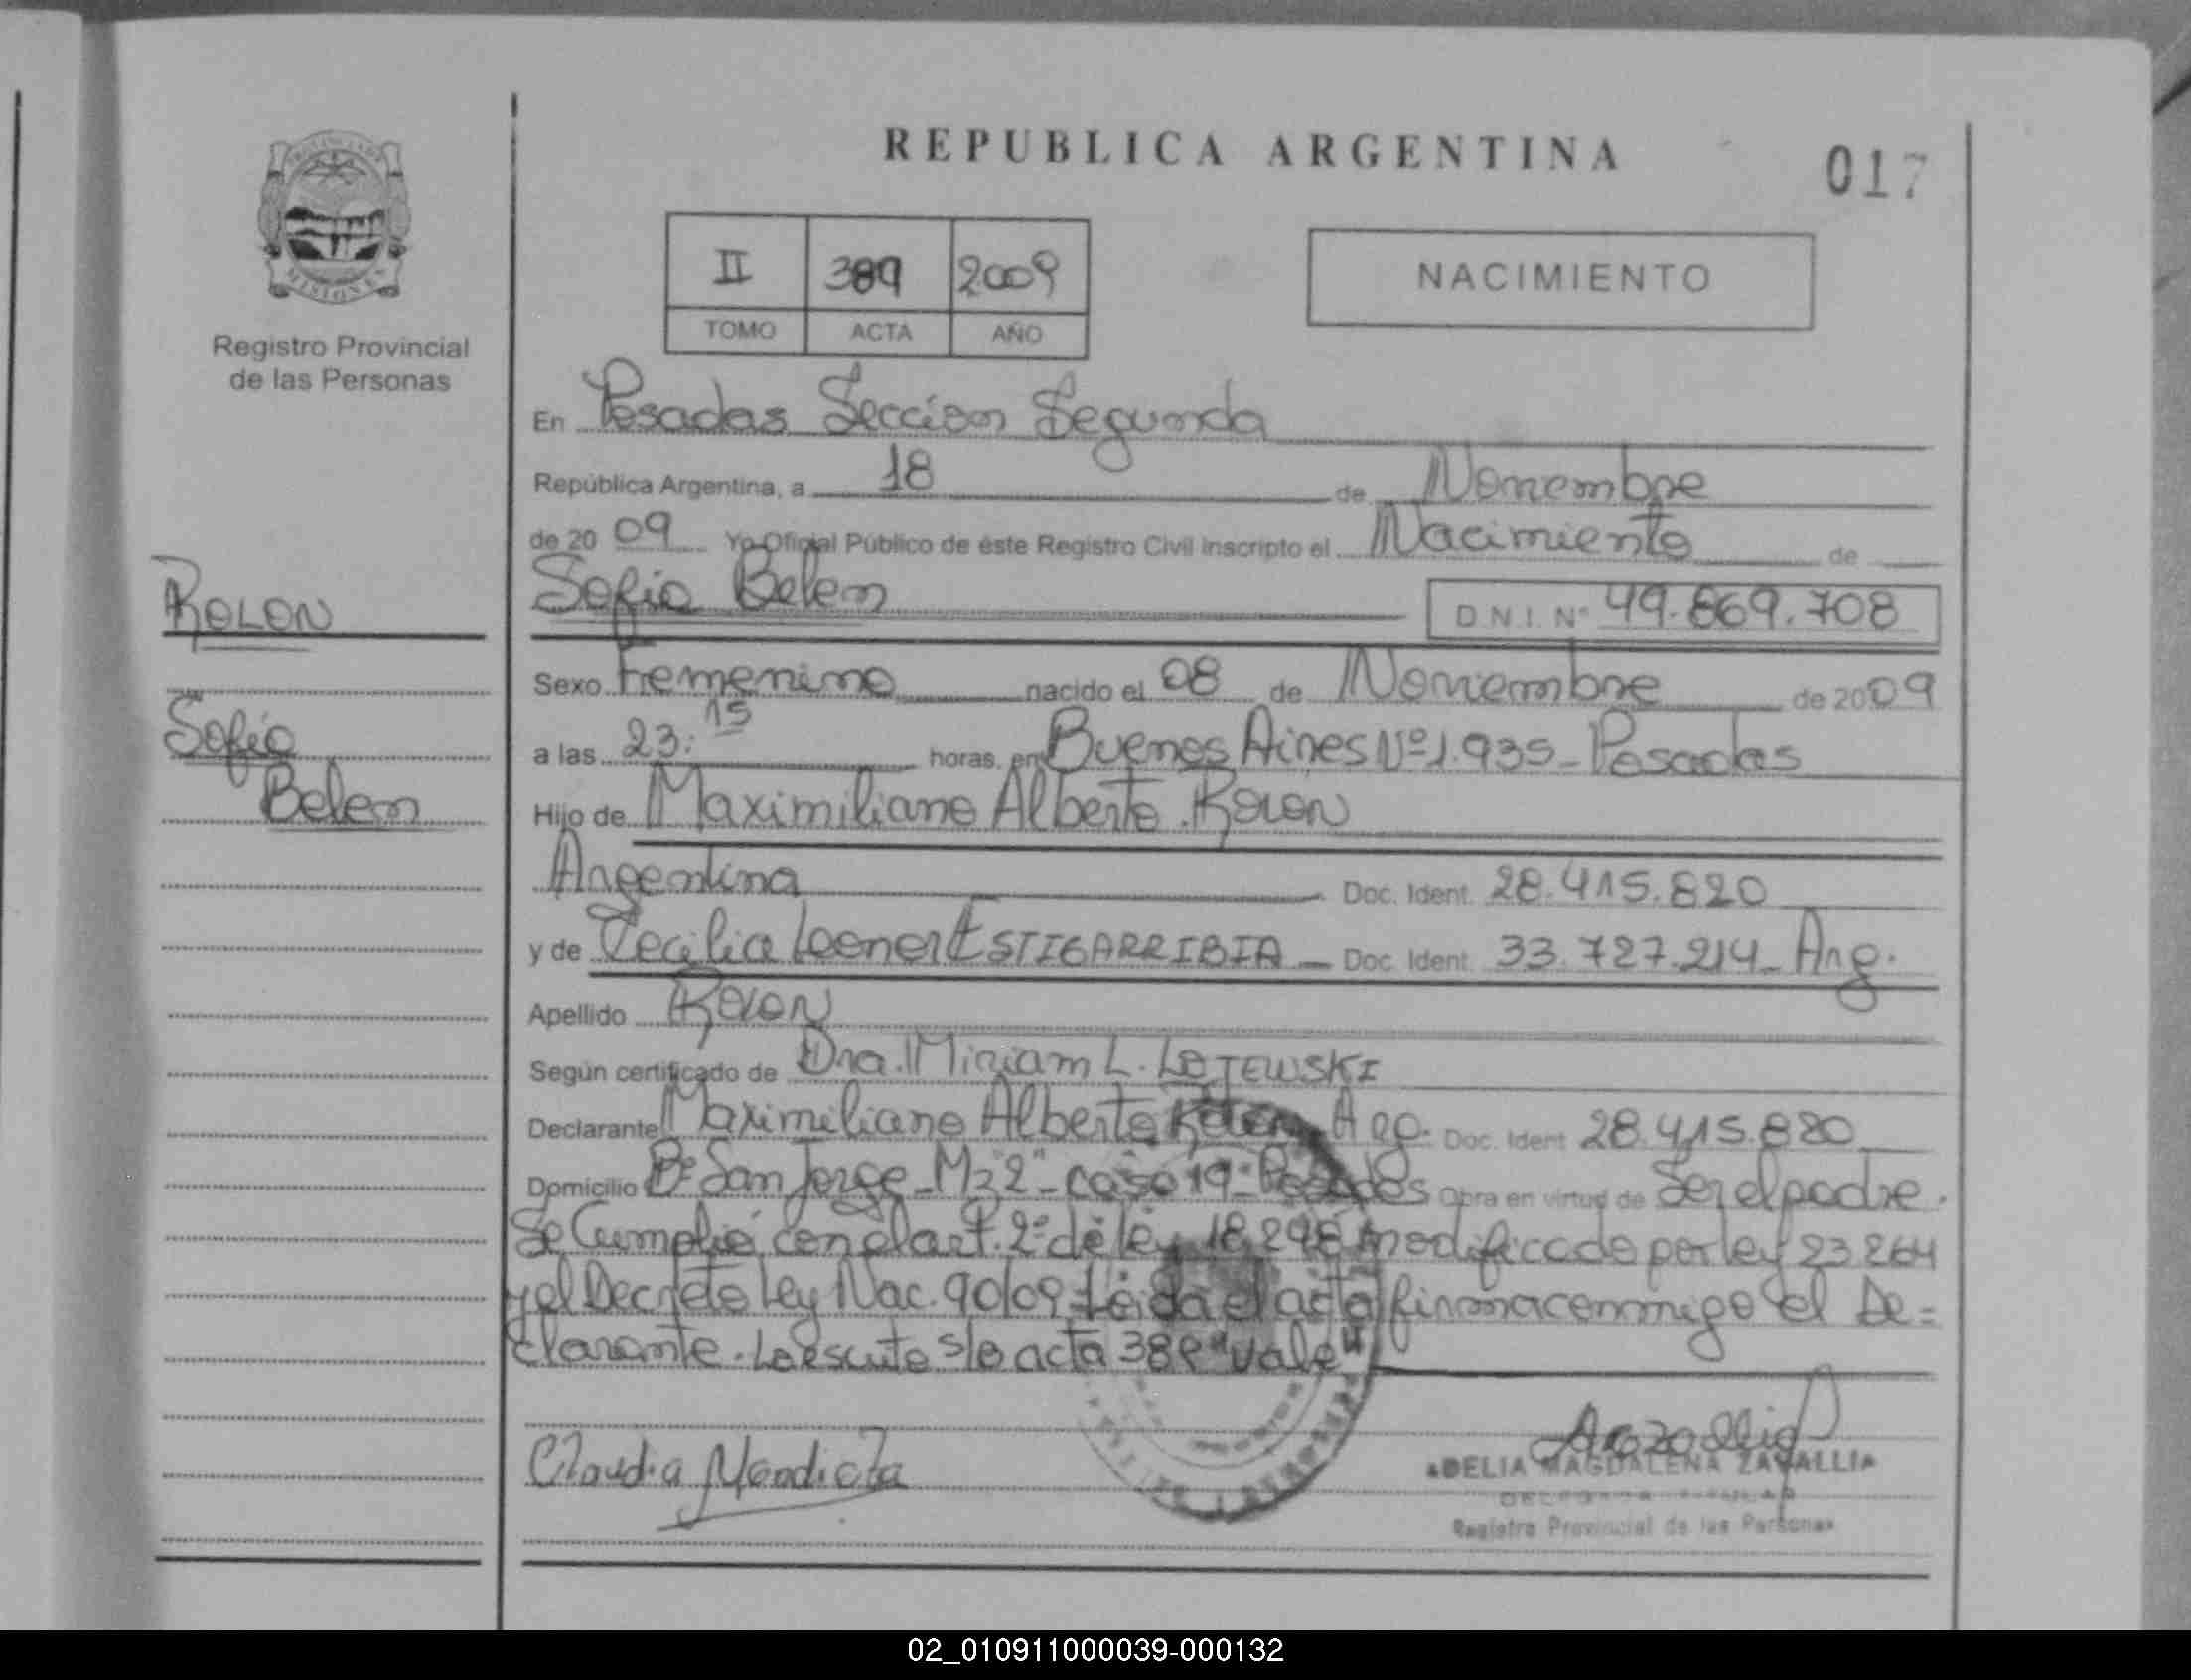 REPUBLICA ARGENTINA
017
PROVINCIA DE
MISIONES
Registro Provincial
de las Personas
II 389 2009
TOMO ACTA AÑO
NACIMIENTO
En Posadas Seccion Segunda
República Argentina, a 18 de Noviembre
de 20 09 Yo Oficial Público de éste Registro Civil Inscripto el Nacimiento de
Sofia Belen D.N.I. Nº 49.869.708
ROLON
Sofia
Belen
Sexo Femenino nacido el 08 de Noviembre de 2009
a las 23:15 horas, en Buenos Aires Nº 1.935 - Posadas
Hijo de Maximiliano Alberto ROLON
Argentina Doc. Ident. 28.415.820
y de Cecilia Leonor ESTIGARRIBIA - Doc. Ident. 33.727.214 - Arg.
Apellido ROLON
Según certificado de Dra. Miriam L. LOJEWSKI
Declarante Maximiliano Alberto Rolon Arg. Doc. Ident. 28.415.820
Domicilio Bº San Jorge - Mz "2" - casa 19 - Posadas Obra en virtud de Ser el padre.
Se Cumplió con el art. 2º de ley 18.248 modificado por ley 23.264
y el Decreto ley Nac. 90/09 - Leída el acta firma conmigo el De=
clarante. Lo escrito s/b acta 389 "Vale"
Claudia Mendieta
ADELIA MAGDALENA ZAVALLIA
Registro Provincial de las Personas
02_010911000039-000132